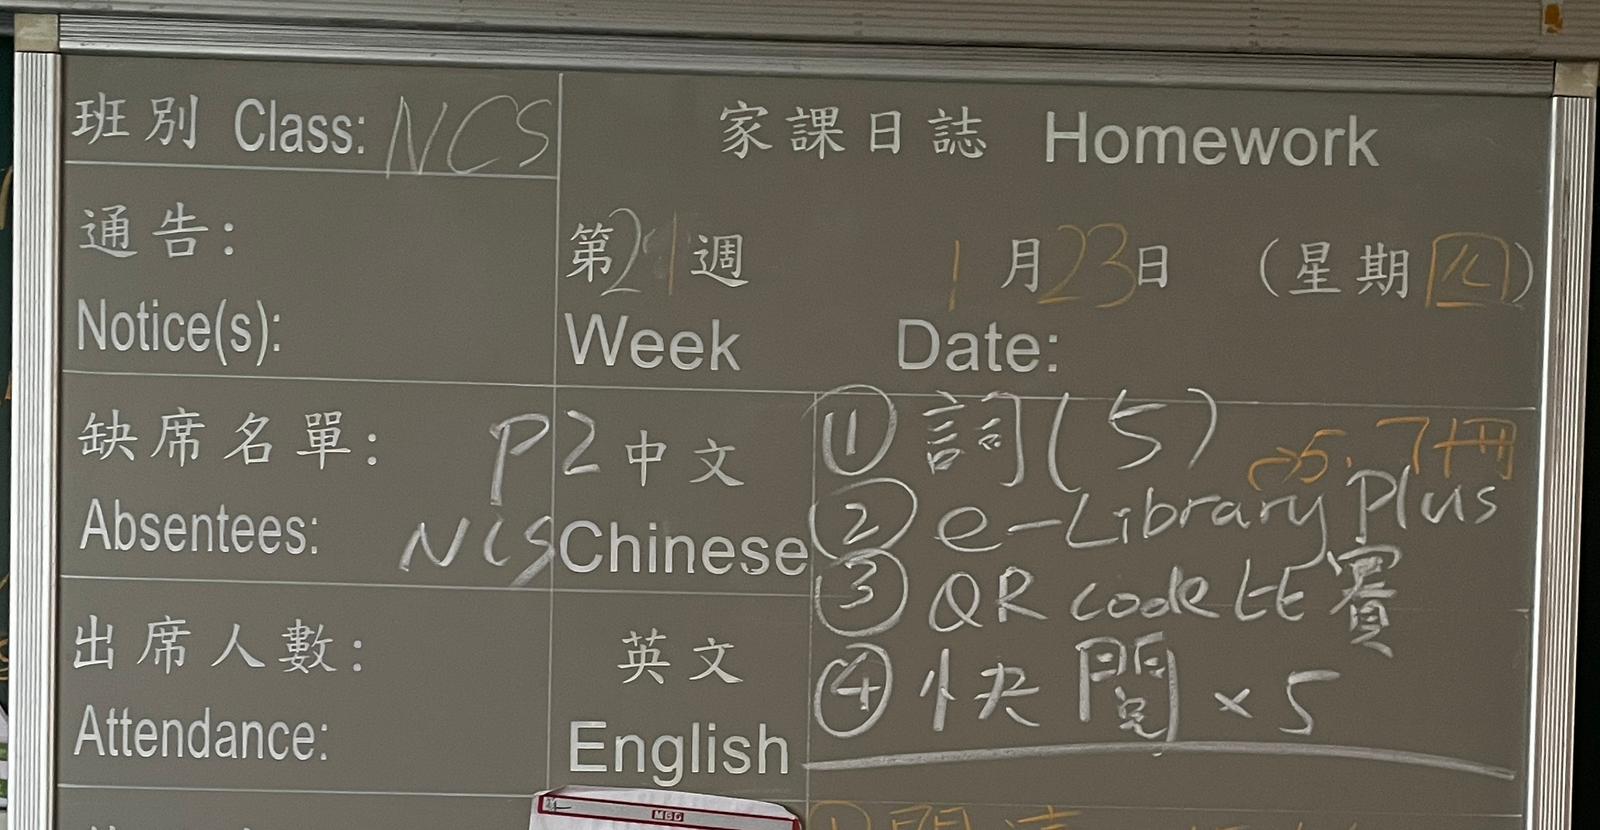 班別 Class: NCS
家課日誌 Homework
通告:
Notice(s):
第21週 1月23日 (星期四)
Week Date:
缺席名單:
Absentees:
P2
NCS
中文
Chinese
① 詞(5)
→5.7冊
② e-Library Plus
③ QR code 比賽
④ 快閱 × 5
出席人數:
Attendance:
英文
English
M&G